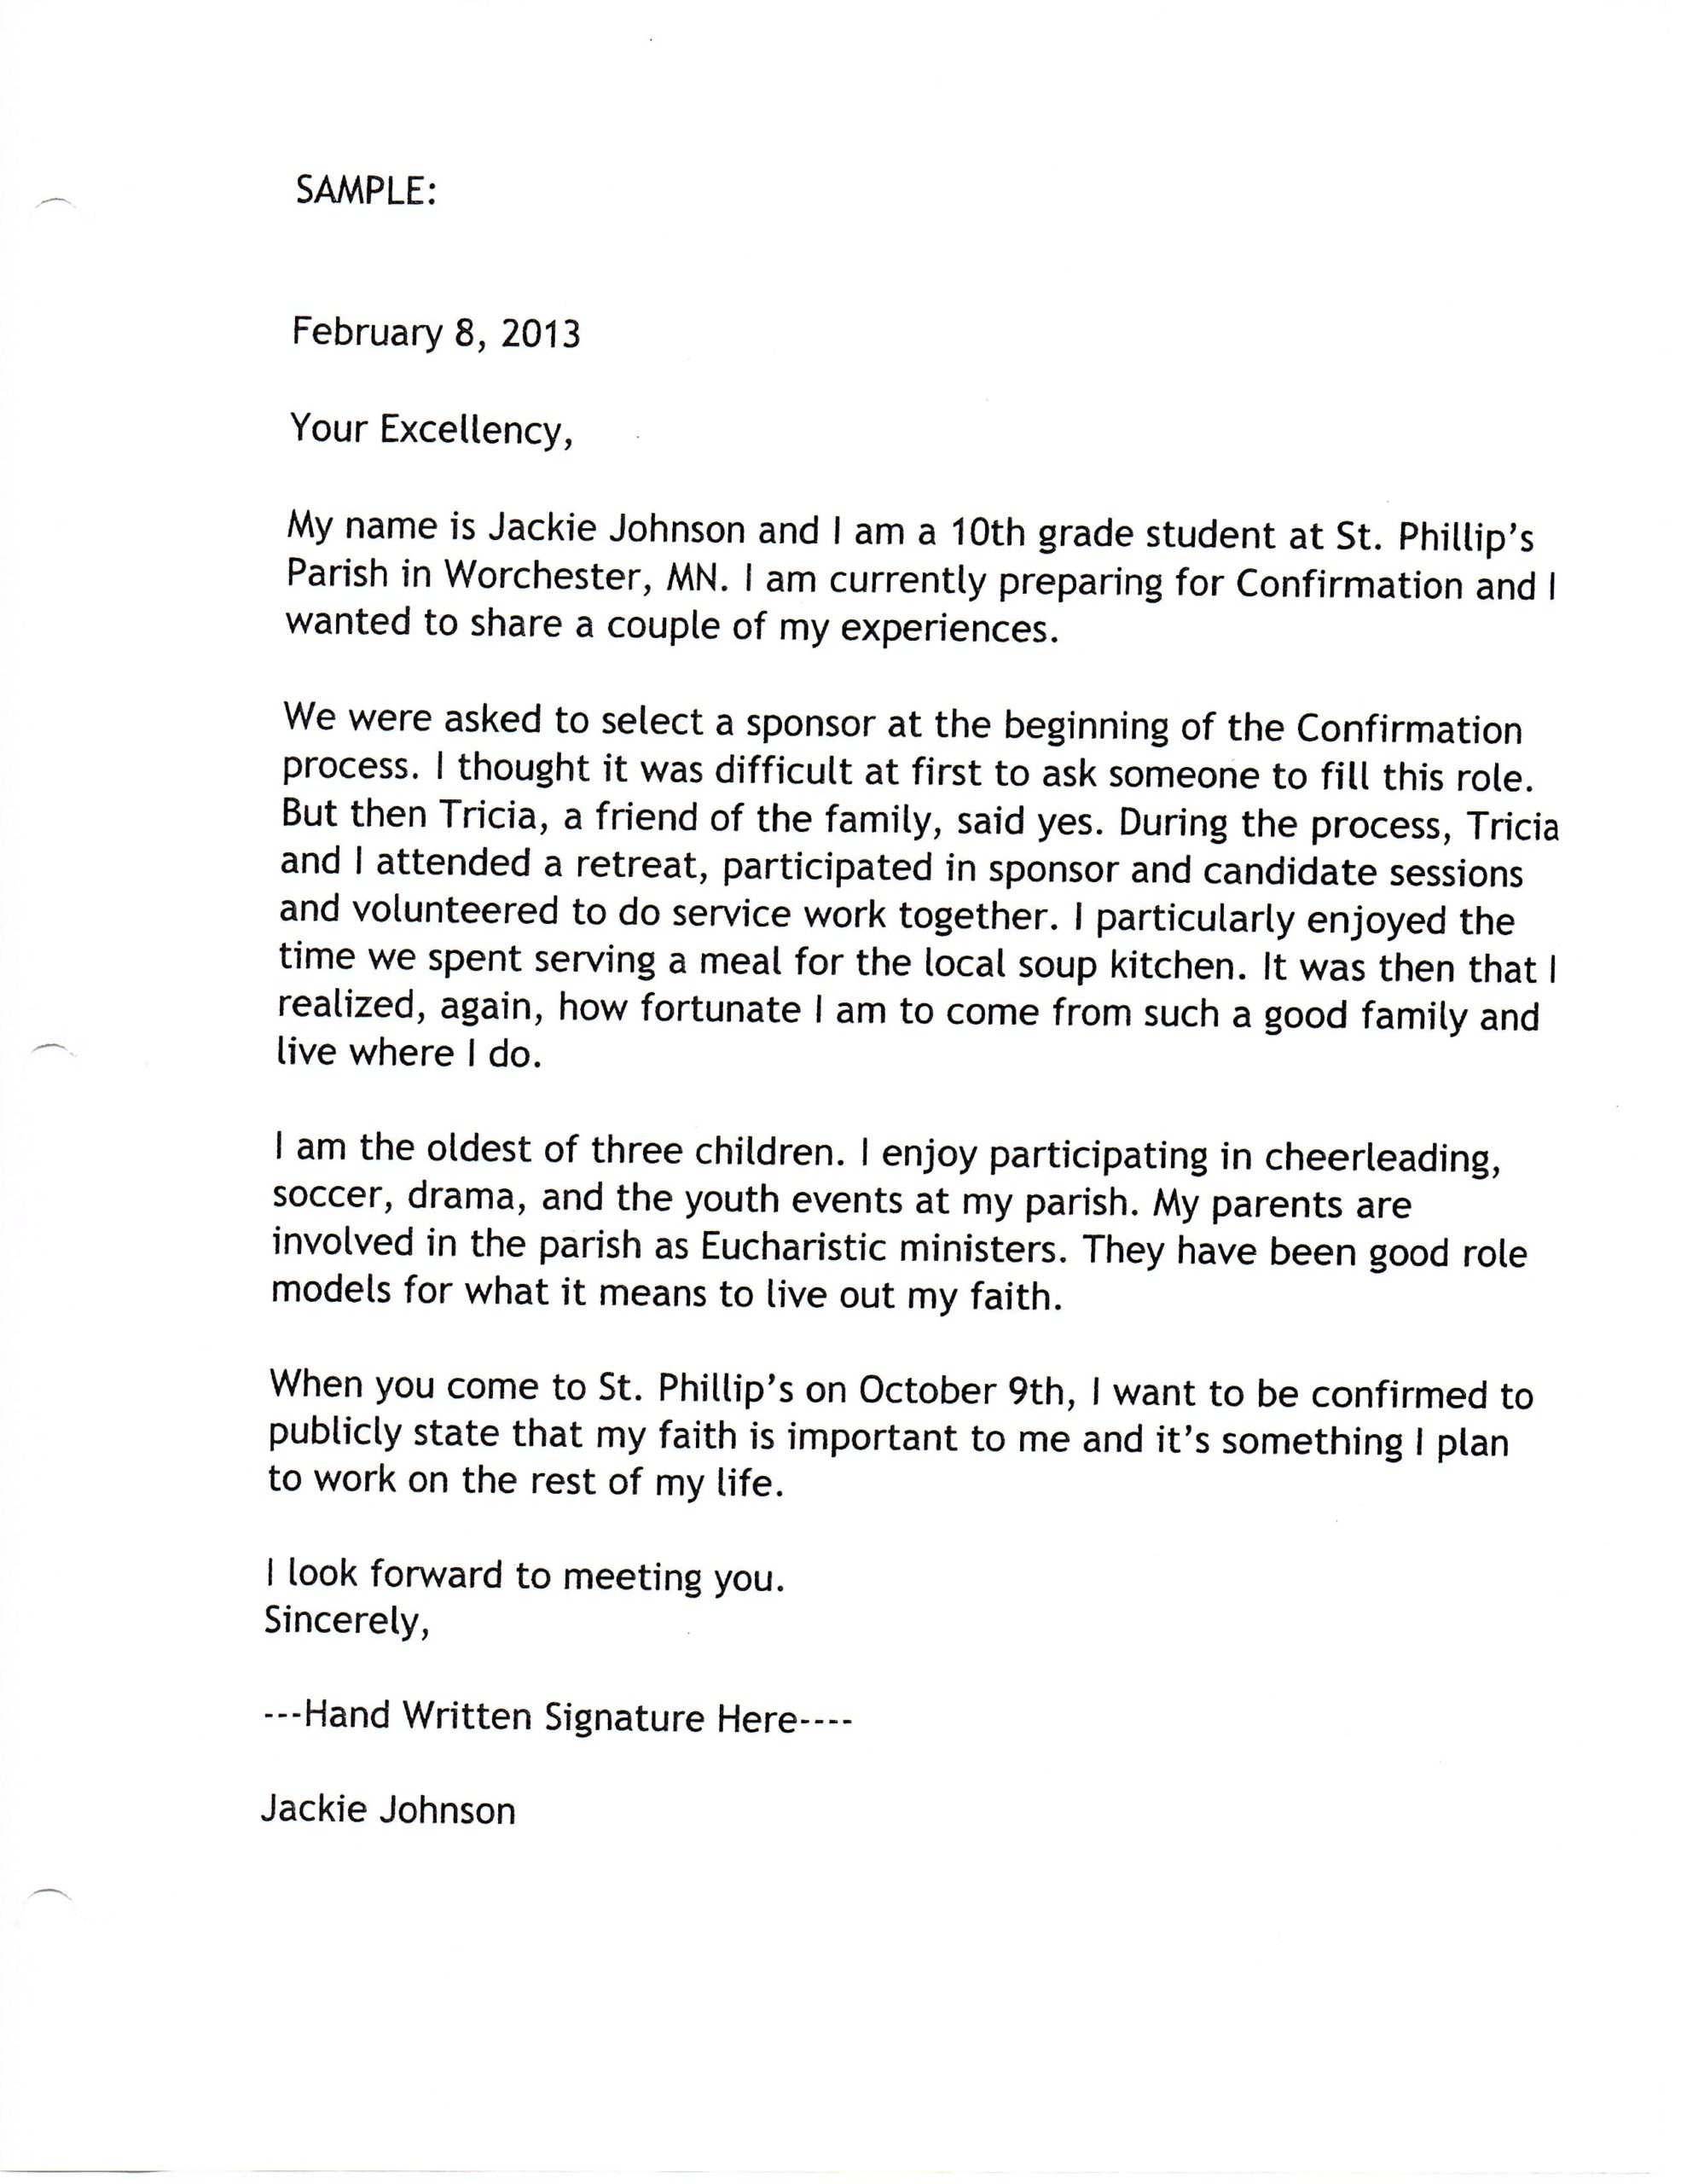 SAMPLE:
February 8, 2013
Your Excellency,
My name is Jackie Johnson and I am a 10th grade student at St. Phillip's
Parish in Worchester, MN. I am currently preparing for Confirmation and I
wanted to share a couple of my experiences.
We were asked to select a sponsor at the beginning of the Confirmation
process. I thought it was difficult at first to ask someone to fill this role.
But then Tricia, a friend of the family, said yes. During the process, Tricia
and I attended a retreat, participated in sponsor and candidate sessions
and volunteered to do service work together. I particularly enjoyed the
time we spent serving a meal for the local soup kitchen. It was then that I
realized, again, how fortunate I am to come from such a good family and
live where I do.
I am the oldest of three children. I enjoy participating in cheerleading,
soccer, drama, and the youth events at my parish. My parents are
involved in the parish as Eucharistic ministers. They have been good role
models for what it means to live out my faith.
When you come to St. Phillip's on October 9th, I want to be confirmed to
publicly state that my faith is important to me and it's something I plan
to work on the rest of my life.
I look forward to meeting you.
Sincerely,
---Hand Written Signature Here----
Jackie Johnson